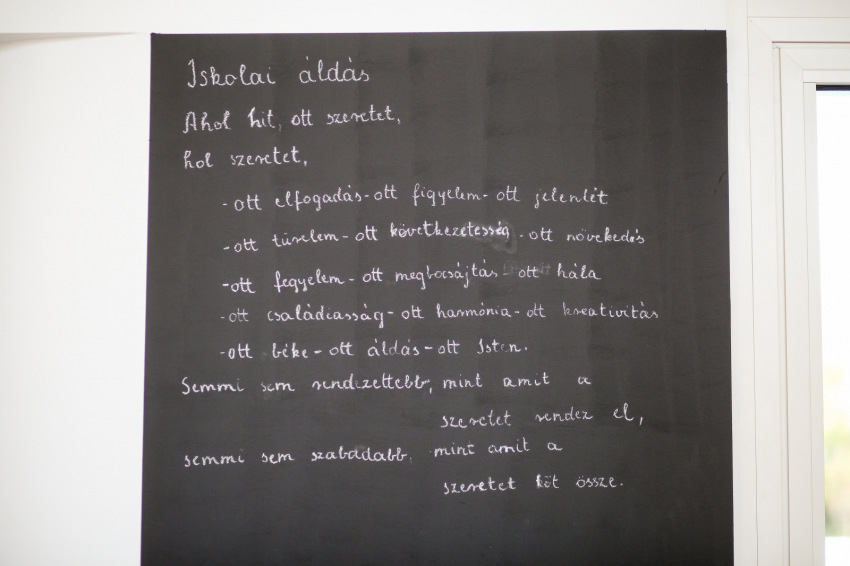 Iskolai áldás
Ahol hit, ott szeretet,
hol szeretet,
-ott elfogadás-ott figyelem-ott jelenlét
-ott türelem-ott következetesség-ott növekedés
-ott fegyelem-ott megbocsájtás ott hála
-ott családiasság-ott harmónia-ott kreativitás
-ott béke-ott áldás-ott Isten.
Semmi sem rendezettebb, mint amit a
szeretet rendez el,
semmi sem szabadabb, mint amit a
szeretet köt össze.